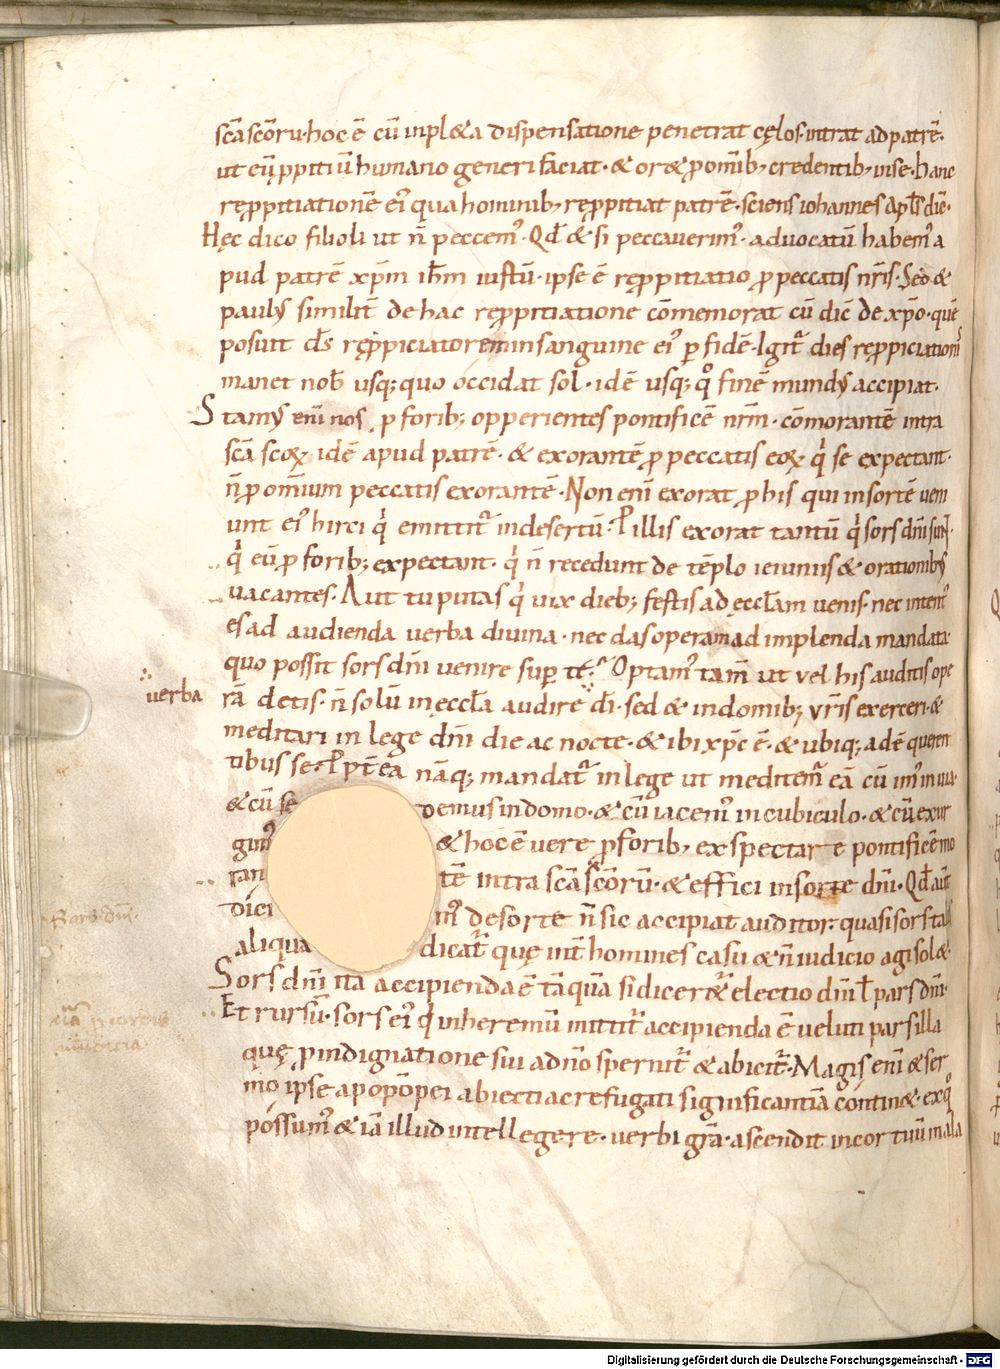 scā scōru· hoc ē cū inpl&a dispensatione penetrat cęlos· intrat ad patrē·
ut eū ꝓpitiū humano generi faciat· & or& ꝓ omīb; credentib; in se· hanc
reꝓpitiationē ei᾽ qua hominib; reꝓpitiat patrē· sciens iohannes apłs dič·
Hęc dico filioli ut n̄ peccem᾽· Qđ & si peccauerim᾽· aduocatū habem᾽ a
pud patrē xp̄m ih̄m iustū· ipse ē reꝓpitiatio ꝓ peccatis nr̄is· Sed &
paulus similit̄ de hac reꝓpitiatione cōmemorat cū dič de xp̄o· quē
posuit d̄s reꝓpiciatorem in sanguine ei᾽ ꝑ fidē· Igit᾽ dies reꝓpiciationis
manet nob̄ usq; quo occidat sol· idē usq; qͦ finē mundus accipiat·
Stamus enī nos ꝓ forib; opperientes pontificē nr̄m· cōmorantē intra
scā scoꝝ idē apud patrē· & exorantē ꝓ peccatis eoꝝ qͥ se expectant·
n̄ ꝓ omīum peccatis exorantē· Non enī exorat ꝓ his qui in sortē ueni
unt ei᾽ hirci qͥ emittit᾽ in desertū· P illis exorat tantū qͥ sors dn̄i sunt·
qͥ eū ꝓ forib; expectant· qͥ n̄ recedunt de tēplo ieiuniis & orationibus
uacantes· Aut tu putas qͥ uix dieb; festis ad ęccłam uenis· nec intent᾽
es ad audienda uerba diuina· nec das operam ad implenda mandata·
quo possit sors dn̄i uenire suꝑ te· Optam᾽ tam̄ ut uel his auditis ope
uerba
rā detis· n̄ solū in ęccła audire d̄i· sed & in domib; vr̄is exerceri· &
meditari in lege dn̄i die ac nocte· & ibi xp̄c ē· & ubiq; adē querent
tibus se· Pt̄ea nāq; mandat᾽ in lege ut meditem᾽ eā cū im᾽ in uia·
& cū se demus in domo· & cū iacem᾽ in cubiculo· & cū exur
gim᾽ & hoc ē uere ꝓ forib; exspectare pontificē mo
ran tē intra scā scōrū· & effici in sorte dn̄i· Qđ aut̄
dici m᾽ de sorte n̄ sic accipiat auditor· quasi sors talis
aliqua dicat᾽ quę int̄ hominēs casu & n̄ iudicio agi sol&·
Sors dn̄i ita accipienda ē tā quā si dicer&᾽ electio dn̄i ł pars dn̄i·
Et rursū· sors ei᾽ qͥ in heremū mittit᾽ accipienda ē ueluti pars illa
quę ꝓ indignatione sui ad dn̄o spernit᾽ & abicit᾽· Magis enī & ser
mo ipse apopōpei abiecti ac refugati significantiā contin&· ex qͦ
possum᾽ & iā illud intellegere· uerbi grā· ascendit in cor tuū mala
Sors· dn̄i·